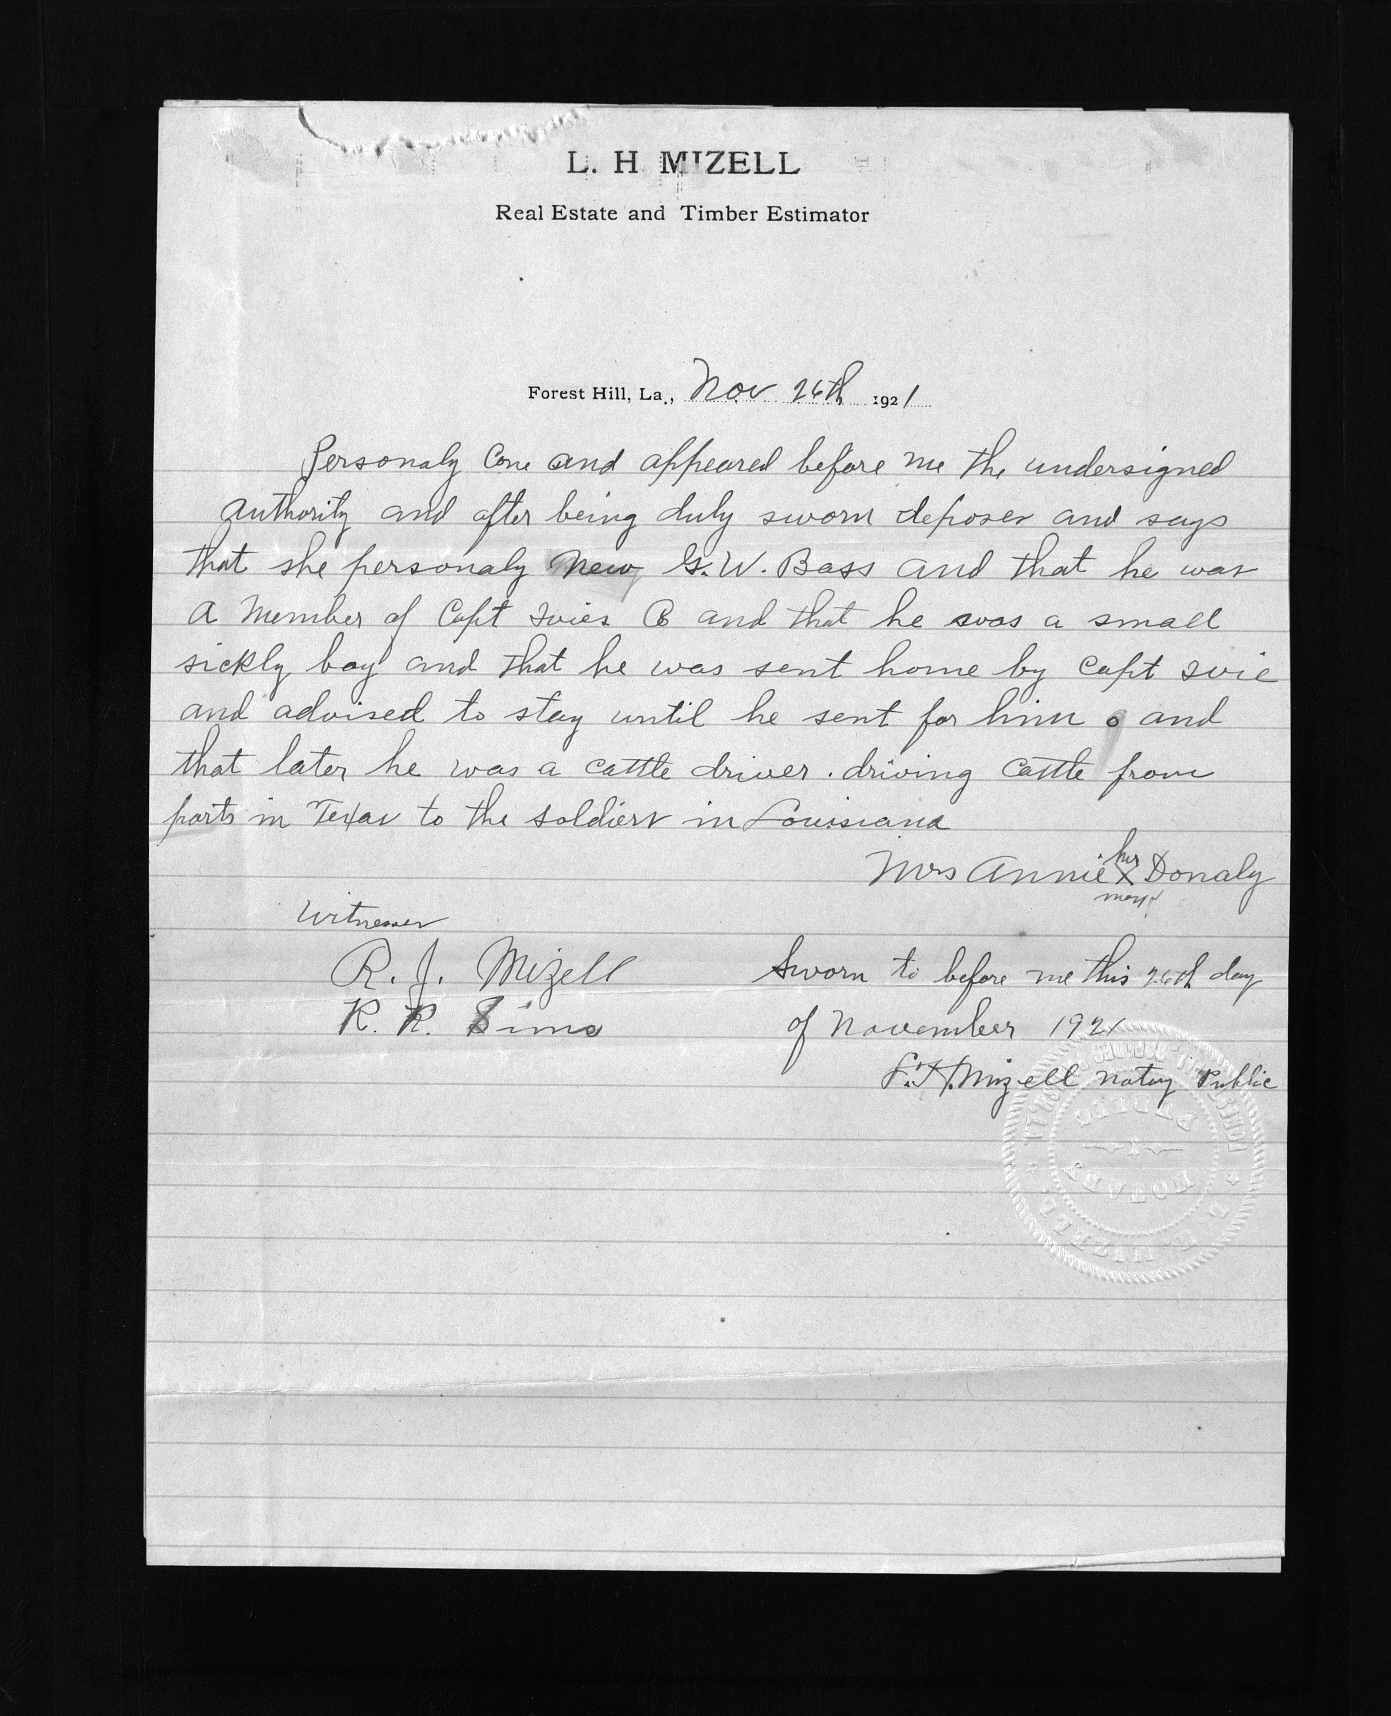 L. H. MIZELL
Real Estate and Timber Estimator
Forest Hill, La., Nov 26th 1921
Personaly Cone and appeared before me the undersigned
authority and after being duly sworn deposes and says
that she personaly new G. W. Bass and that he was
a member of Capt Ivies Co and that he was a small
sickly boy and that he was sent home by Capt Ivie
and advised to stay until he sent for him and
that later he was a cattle driver. driving cattle from
parts in Texas to the soldiers in Louisiana
her
Mrs Annie X Donaly
mark
Witnesses
R. J. Mizell
R. R. Sims
Sworn to before me this 26th day
of November 1921
L. H. Mizell Notay Public
NOTARY